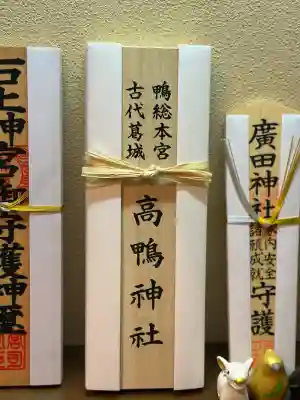 鴨総本宮
古代葛城
高鴨神社
廣田神社
家内安全
諸願成就
守護
石上神宮御守護神璽